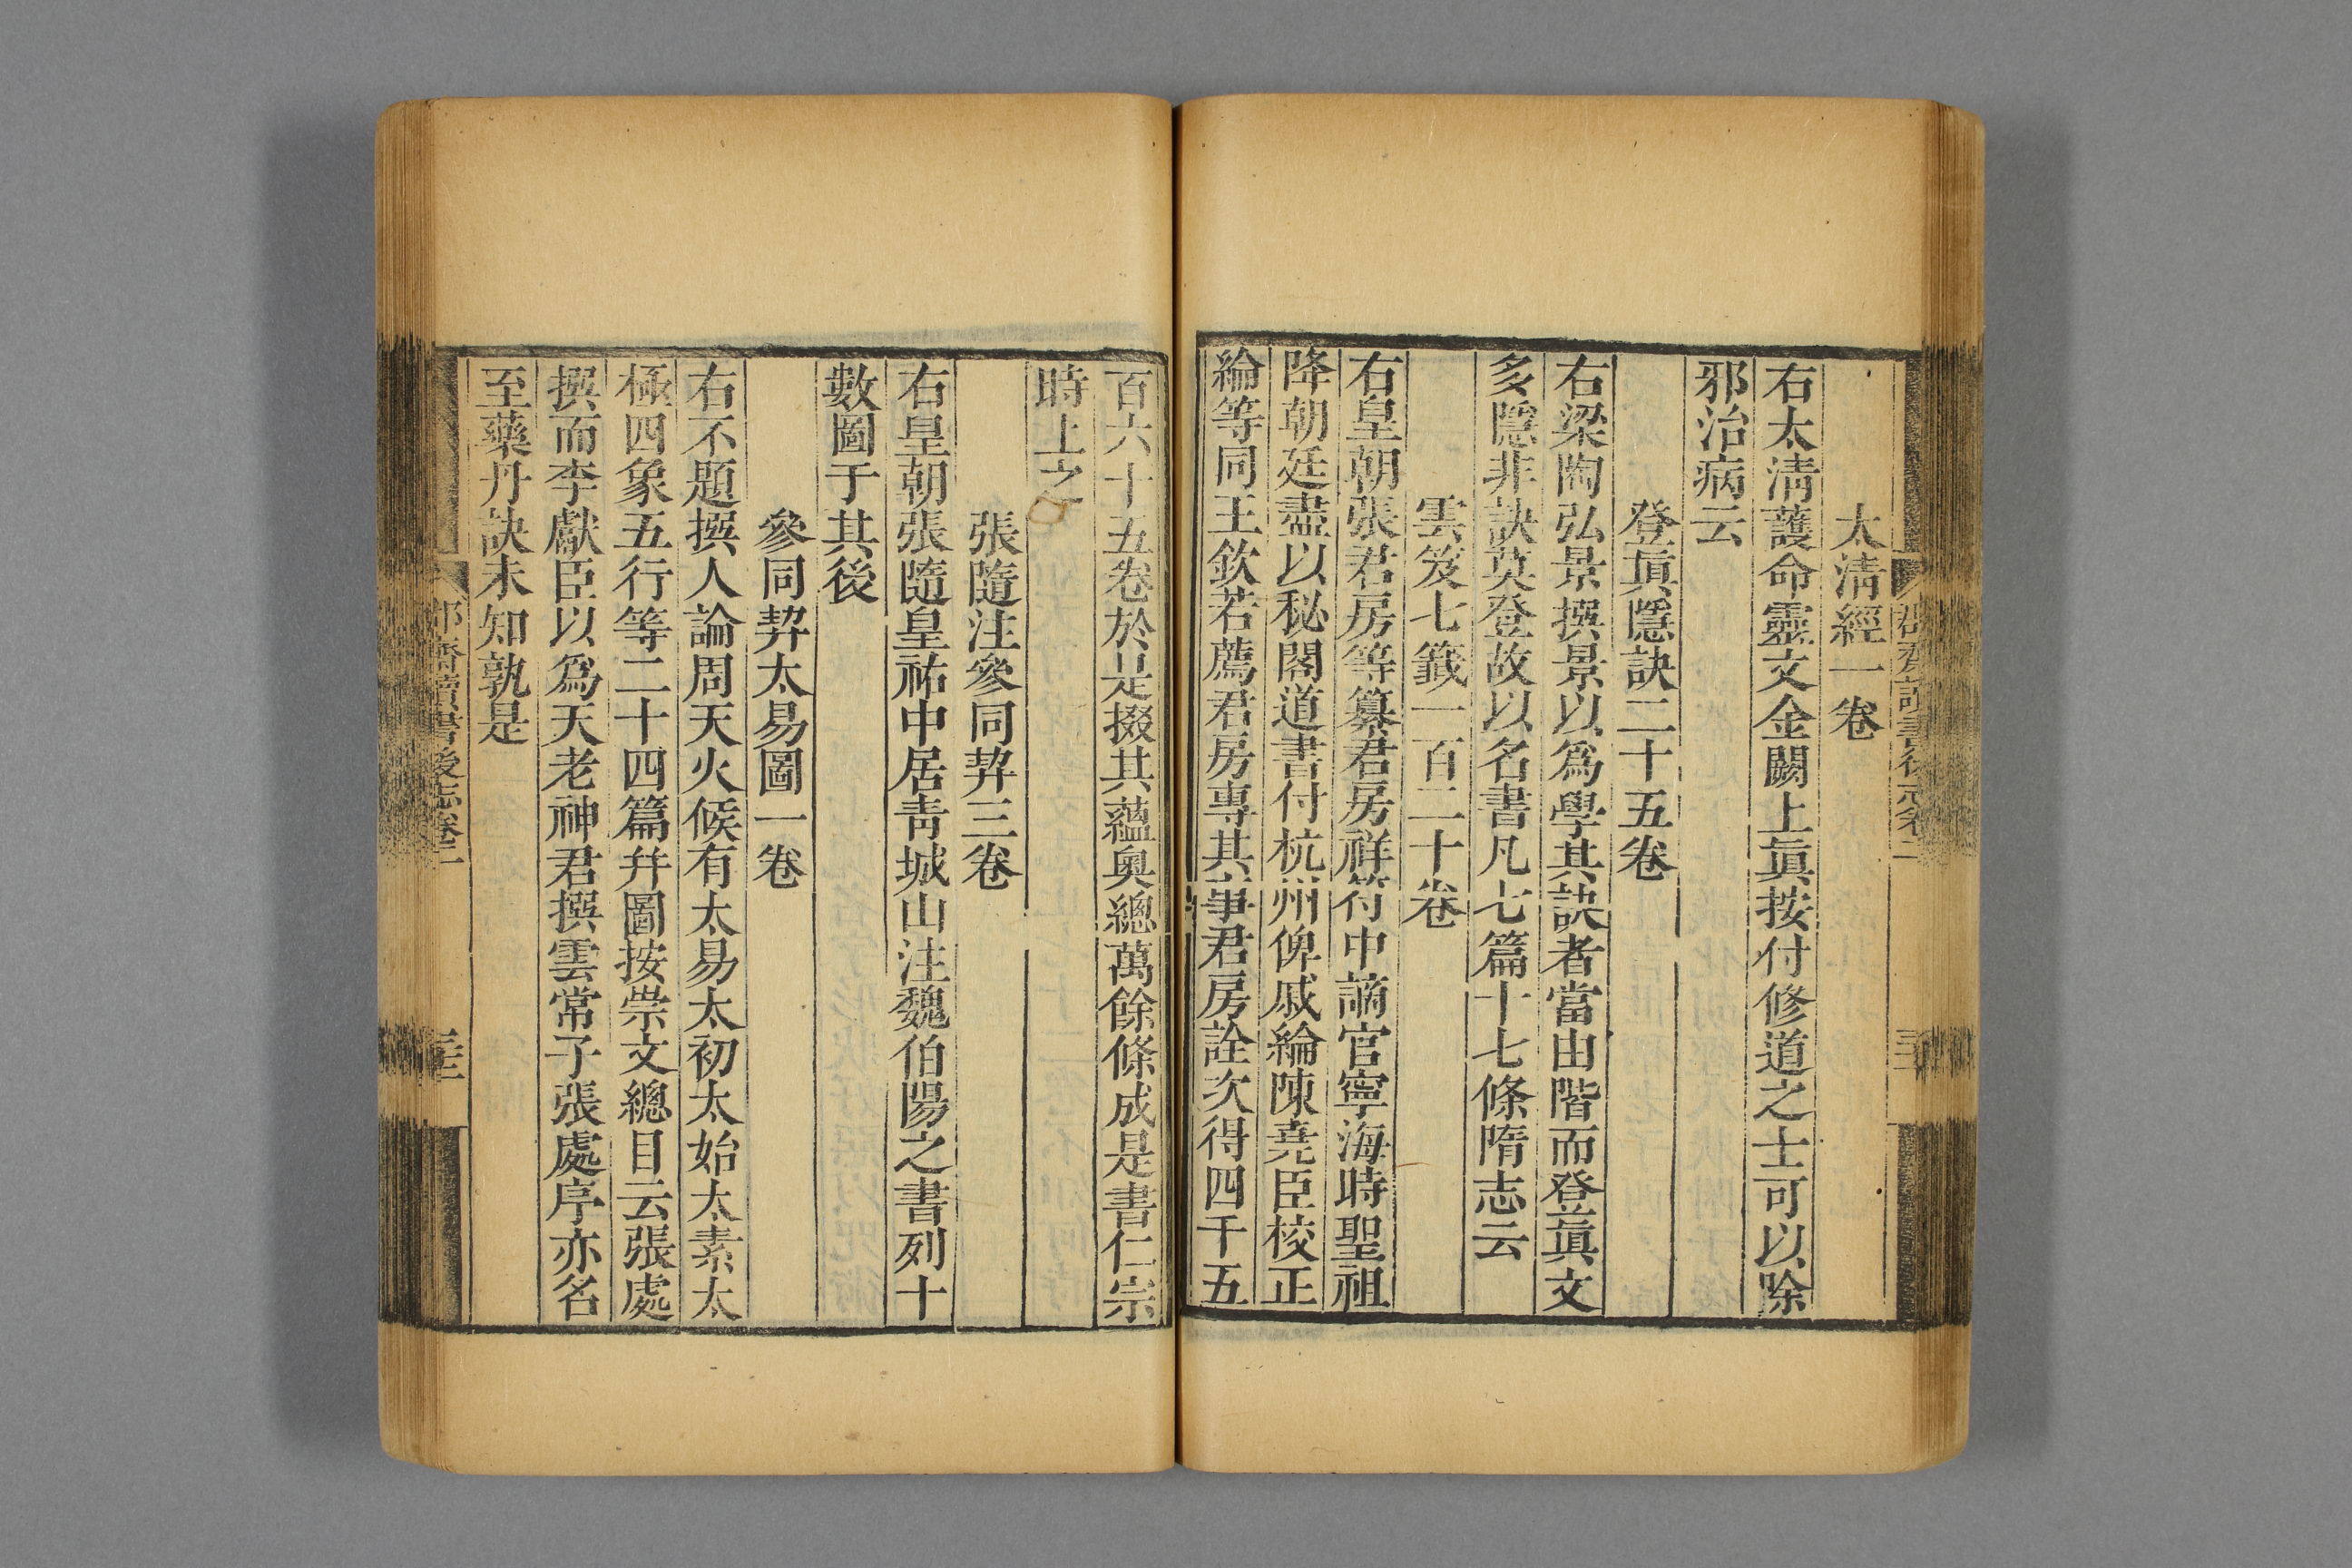 太清經一卷
右太清護命靈文金闕上眞按付修道之士可以除
邪治病云
登眞隱訣二十五卷
右梁陶弘景撰景以爲學其訣者當由階而登眞文
多隱非訣莫登故以名書凡七篇十七條隋志云
雲笈七籤一百二十卷
右皇朝張君房等纂君房祥符中謫官寧海時聖祖
降朝廷盡以秘閣道書付杭州俾戚綸陳堯臣校正
綸等同王欽若薦君房專其事君房詮次得四千五
百六十五卷於是掇其蘊奥總萬餘條成是書仁宗
時上之
張隨注參同契三卷
右皇朝張隨皇祐中居青城山注魏伯陽之書列十
數圖于其後
參同契太易圖一卷
右不題撰人論周天火候有太易太初太始太素太
極四象五行等二十四篇并圖按崇文總目云張處
撰而李獻臣以爲天老神君撰雲常子張處序亦名
至藥丹訣未知孰是
讀書後志卷二